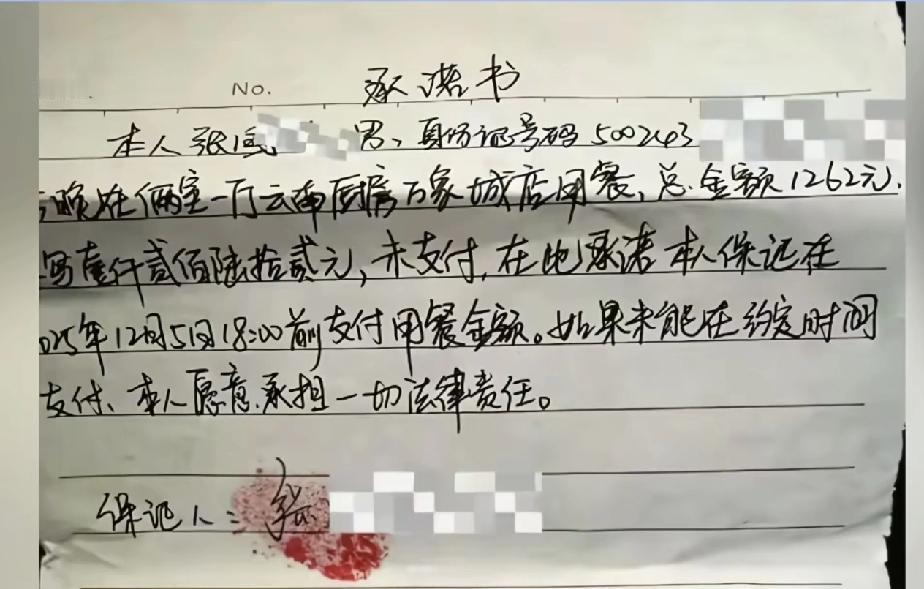 No.
承诺书
本人张 男、身份证号码500243
晚在俩室一厅云南厨房万象城店用餐,总金额1262元.
写壹仟贰佰陆拾贰元,未支付,在此承诺本人保证在
025年12月5日18:00前支付用餐金额。如果未能在约定时间
支付、本人愿意承担一切法律责任。
保证人:张